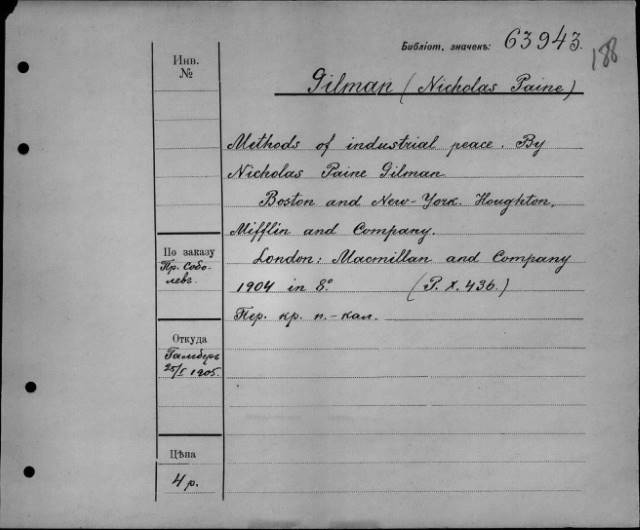 Библіот. значекъ: 63943.
188
Инв.
№
Gilman (Nicholas Paine)
Methods of industrial peace. By
Nicholas Paine Gilman
Boston and New-York. Houghton,
Mifflin and Company.
London: Macmillan and Company
1904 in 8º (P. X. 436.)
Пер. кр. п.-кал.
По заказу
Пр. Собо-
левъ.
Откуда
Гамберъ
25/I 1905.
Цѣна
4 р.